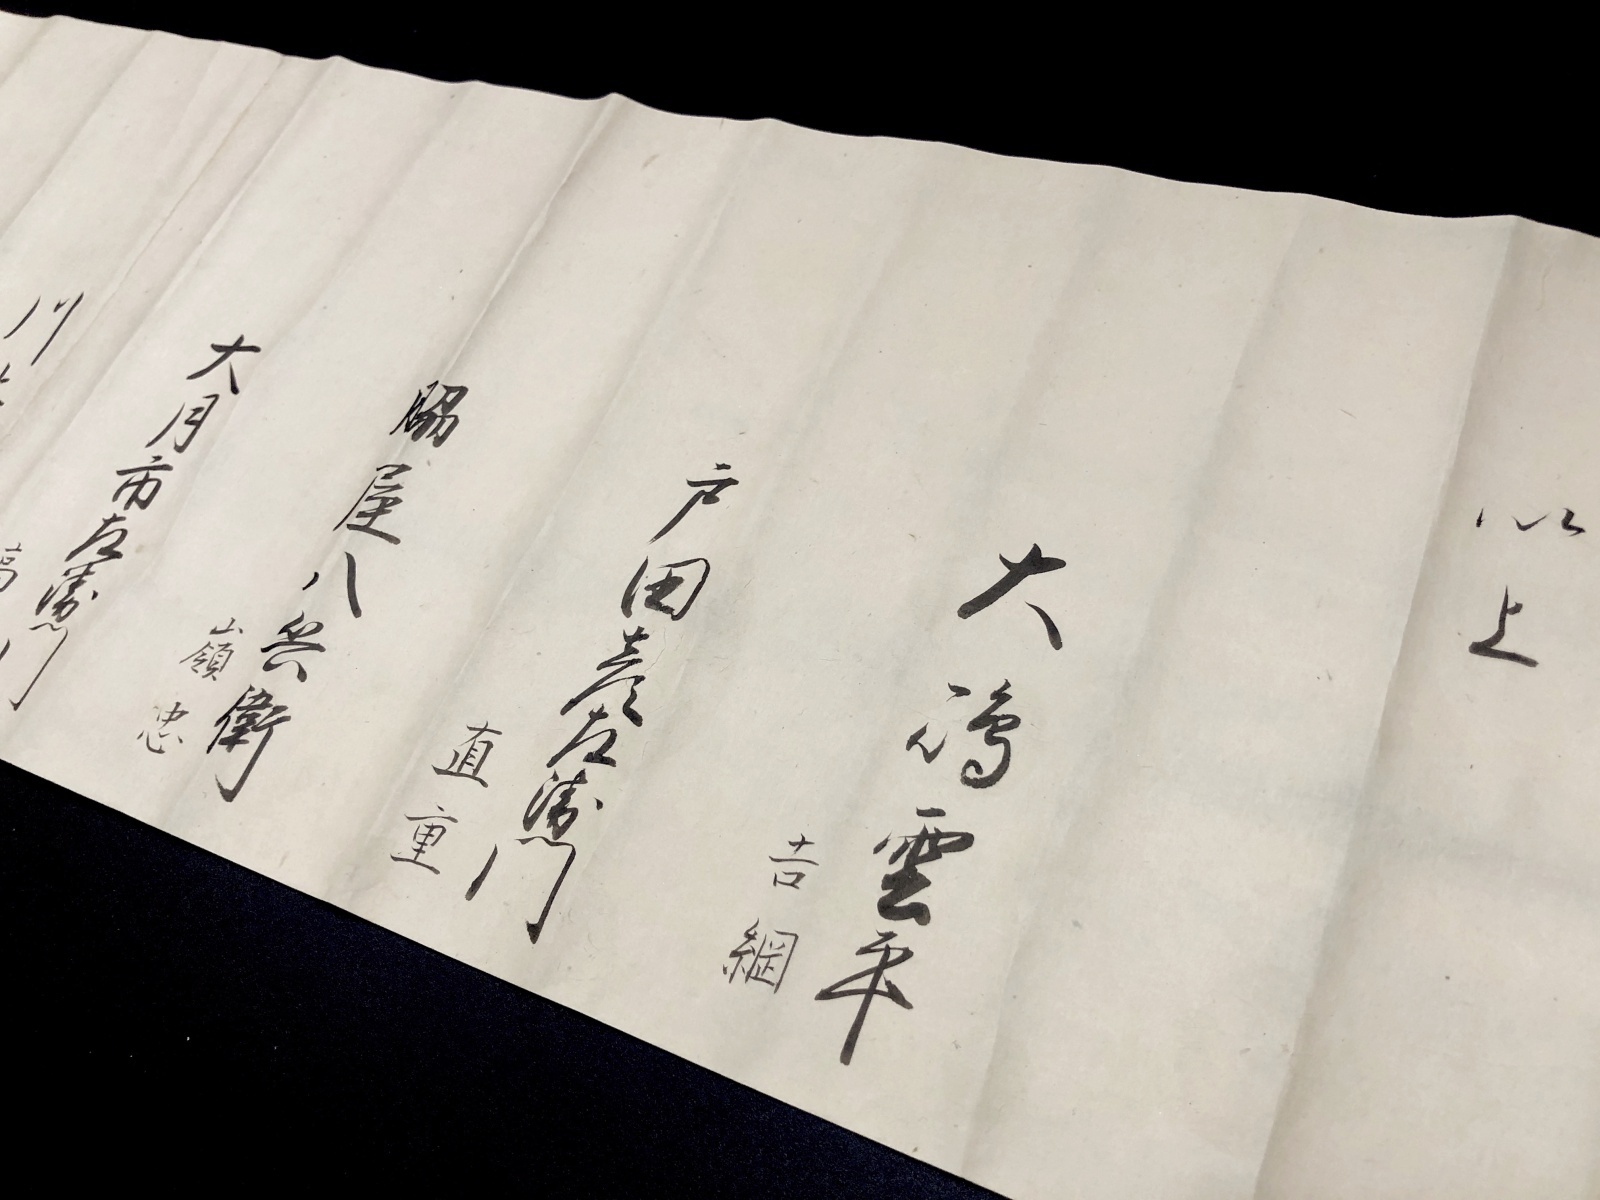 以上
大嶋雲平
吉綱
戸田彦左衛門
直重
脇屋八兵衛
嶺忠
大月市左衛門
高
川